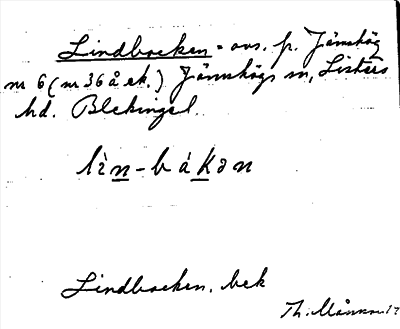 Lindbacken = avs. p. Jämshög
nr 6 (nr 36 å ek.) Jämshögs sn, Listers
hd. Blekinge l.
lìn-bákən
Lindbacken, bek
Th. Månsson